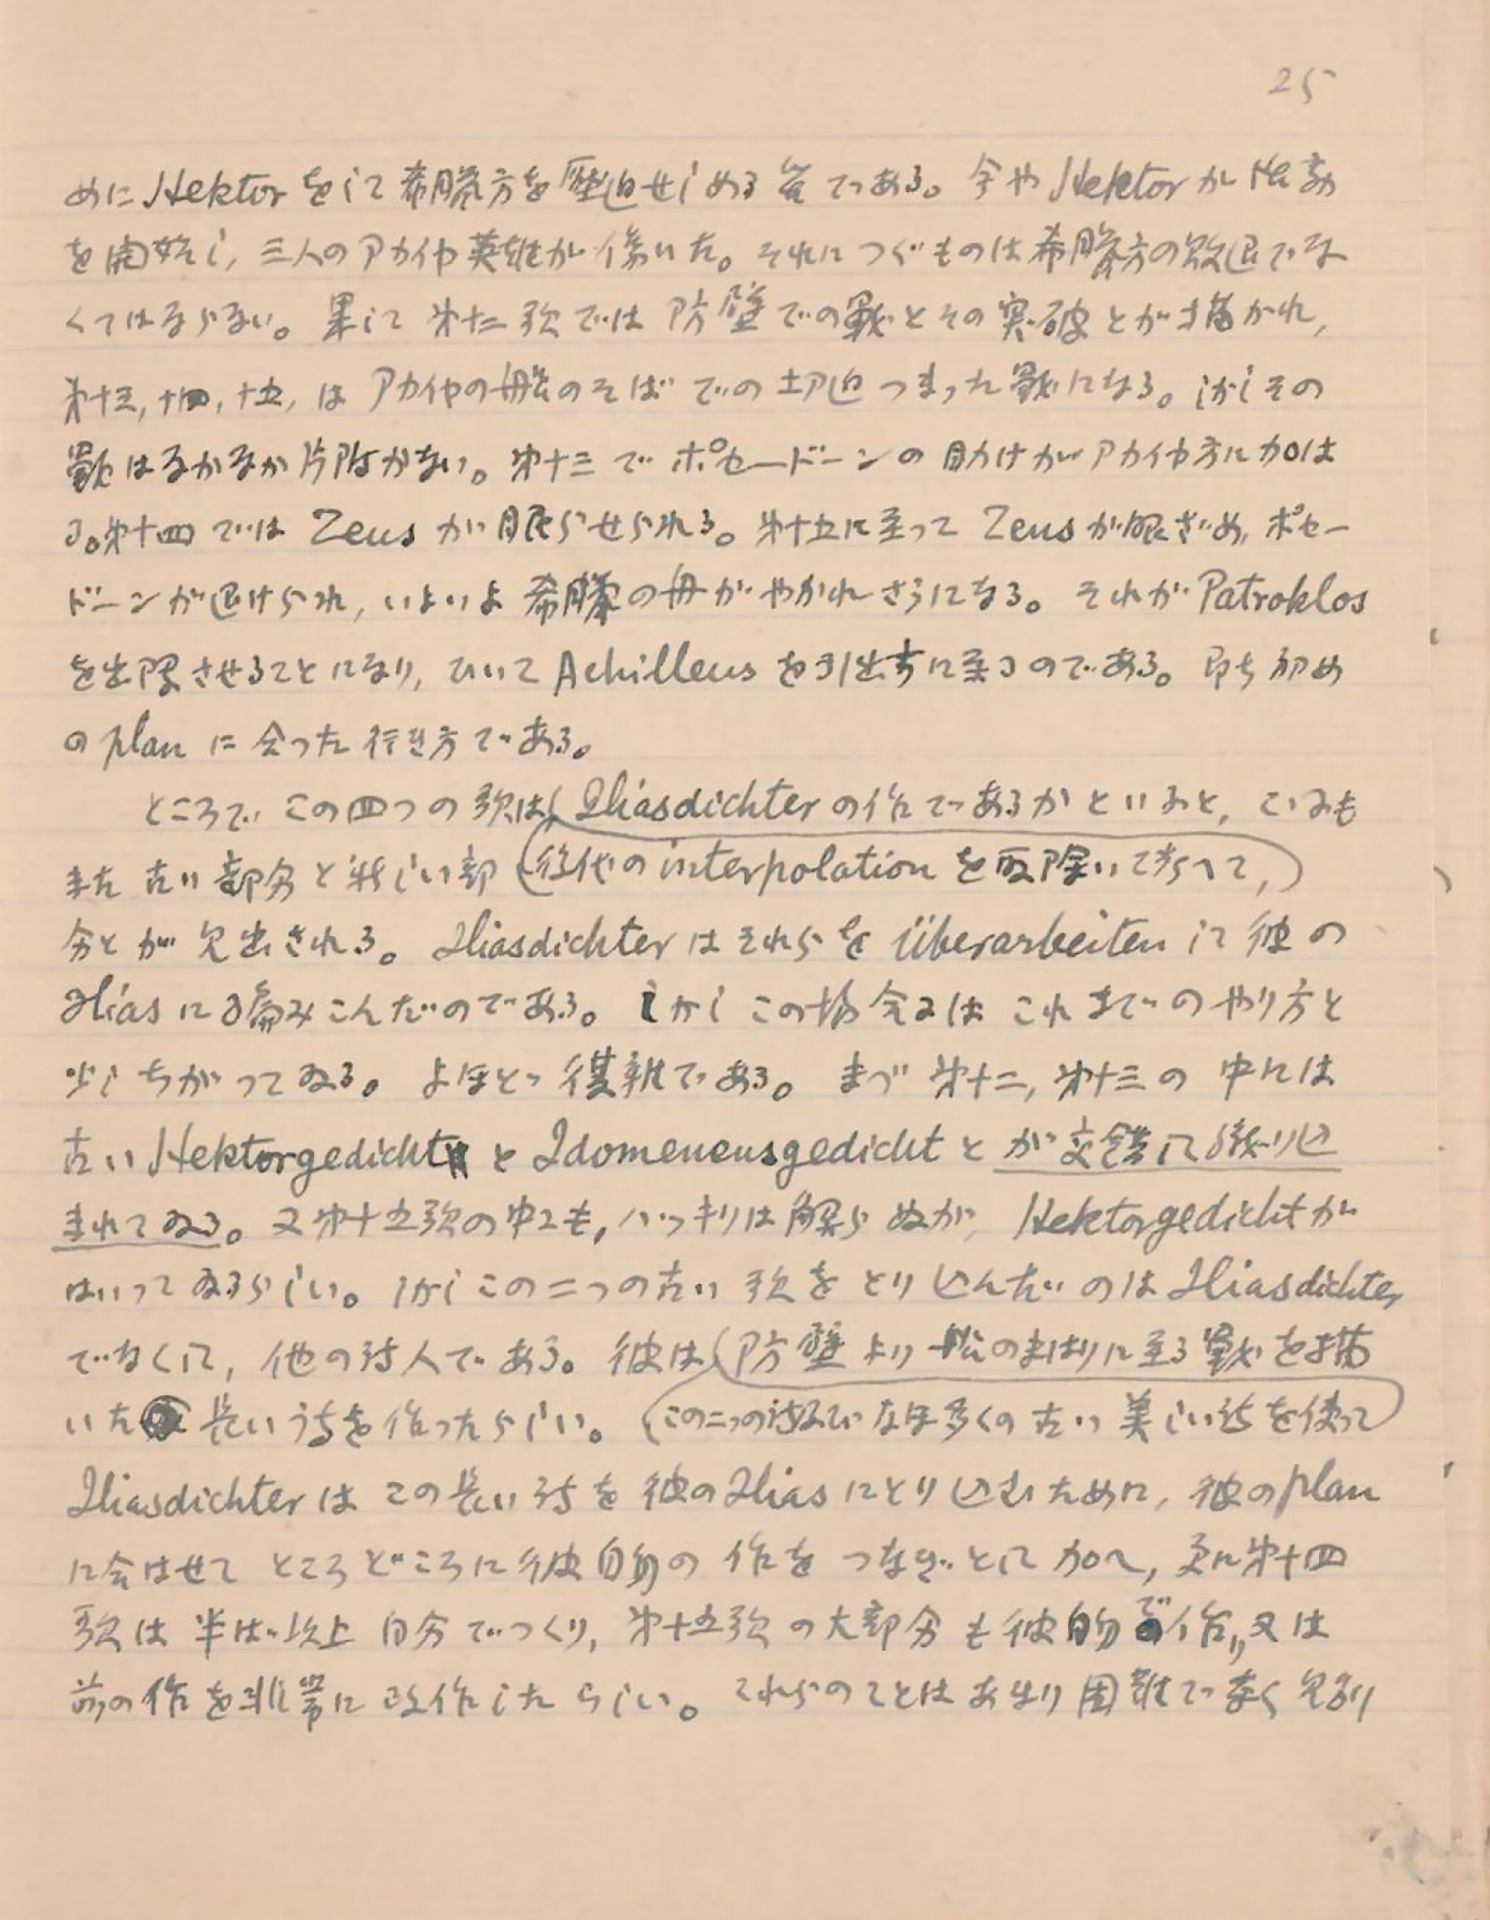 25
めに Hektor をして希臘方を圧迫せしめる筈である。今や Hektor が活動
を開始し, 三人のアカイヤ英雄が傷いた。それにつぐものは希臘方の敗退でな
くてはならない。果して第十二歌では防壁での戰とその突破とが描かれ,
第十三, 十四, 十五, は アカイヤの船のそばでの切迫つまった戰になる。しかしその
戰はなかなか片附かない。第十三でポセードーンの助けがアカイヤ方に加は
る。第十四では Zeus が眠らせられる。第十五に至って Zeus が眼ざめ, ポセー
ドーンが退けられ, いよいよ希臘の舟がやかれさうになる。それが Patroklos
を出陣させることになり, ひいて Achilleus を引出すに至るのである。即ち初め
の plan に合った行き方である。
ところで, この四つの歌は, Iliasdichter の作であるかといふと, こゝでも
また古い部分と新しい部 (後代の interpolation を取除いて考へて,)
分とが見出される。Iliasdichter はそれらを überarbeiten して彼の
Ilias に編みこんだのである。しかしこの場合には これまでのやり方と
少しちがってゐる。よほど複雑である。まづ第十二, 第十三の中には
古い Hektorgedicht と Idomeneusgedicht とが交錯して織り込
まれてゐる。又第十五歌の中にも, ハッキリは解らぬが, Hektorgedicht が
はいってゐるらしい。しかしこの二つの古い歌をとり込んだのは Iliasdichter
でなくして, 他の詩人である。彼は 防壁より船のまはりに至る戰を描
いた 長い詩を作ったらしい。(この二つの詩及びなほ多くの古い美しい詩を使って)
Iliasdichter は この長い詩を彼の Ilias にとり込むために, 彼の plan
に合はせて ところどころに彼自身の作をつなぎとして加へ, 更に第十四
歌は半ば以上自分でつくり, 第十五歌の大部分も彼自身で作り, 又は
前の作を非常に改作したらしい。これらのことはあまり困難でなく見分け